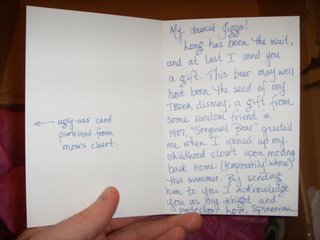 ← ugly-ass card
purloined from
mom's closet.
My dearest Jiggs!
Long has been the wait,
and at last I send you
a gift. This bear may well
have been the seed of my
TBDEA dismay; a gift from
some random friend in
1987, "Sergeant Bear" greeted
me when I opened up my
childhood closet upon moving
back home (temporarily! whew)
this summer. By sending
him to you I acknowledge
you as my knight and
protector. Love, Spinnerina